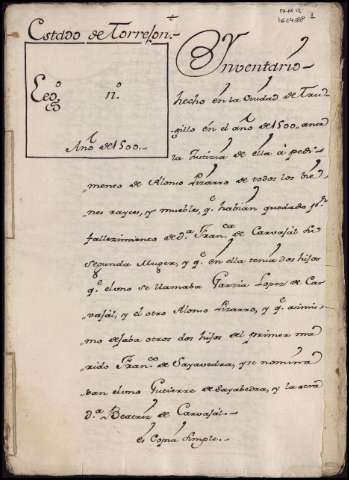 Estado de Torrejon.
Leg.º nº.
Año de 1500.
Ynventario
hecho en la Ciudad de Tru-
gillo en el año de 1500 ante
la Justicia de ella à pedi-
mento de Alonso Pizarro de todos los bie-
nes rayces, y muebles, q.e habian quedado p.r
fallezimiento de D.ª Fran.ca de Carvajal su
segunda Muger, y q.e en ella tenia dos hijos
q.e el uno se llamaba Garzia Lopez de Car-
vajal, y el otro Alonso Pizarro, y q.e asimis-
mo dejaba otros dos hijos del primer ma-
rido Fran.co de Sayavedra, y se nomina-
van el uno Gutierre de Sayabedra, y la otra
D.ª Beatriz de Carvajal.
es Copia simple.